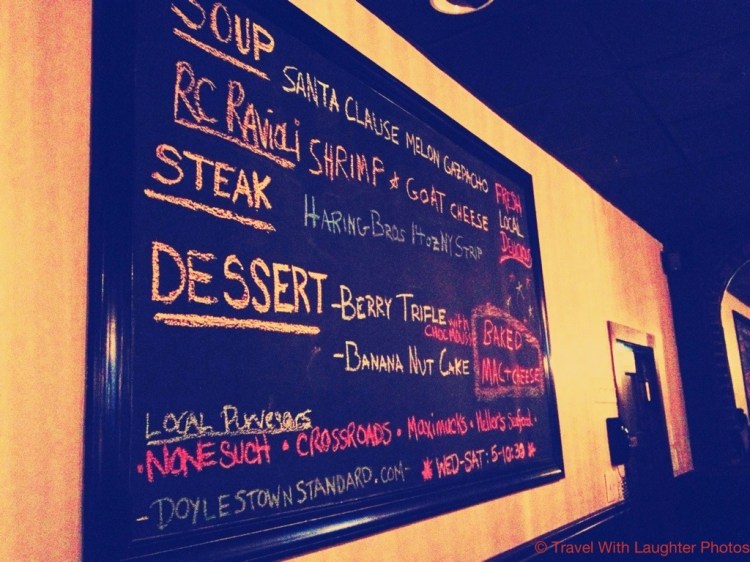 SOUP
SANTA CLAUSE MELON GAZPACHO
RC RAVIOLI SHRIMP & GOAT CHEESE
FRESH
LOCAL
DELICIOUS
STEAK HARING BROS 14oz NY STRIP
DESSERT -BERRY TRIFLE with CHOC MOUSSE
-BANANA NUT CAKE
BAKED
MAC+CHEESE
LOCAL PURVEYORS
•NONESUCH • CROSSROADS • Maximucks • Heller's Seafood •
-DOYLESTOWNSTANDARD.COM- WED-SAT: 5-10:30
© Travel With Laughter Photos